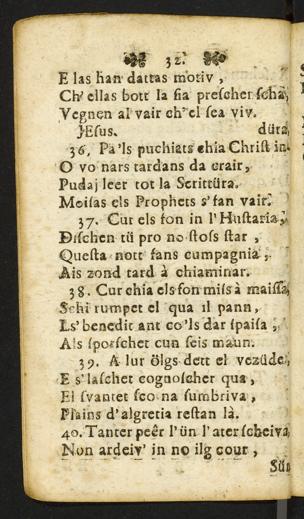 32.
E las han dattas motiv,
Ch' ellas bott la sia prescher scha,
Vegnen al vair ch' el sea viv.
JEsus. düra,
36. Pa'ls puchiats chia Christ in.
O vo nars tardans da crair,
Pudaj leer tot la Scrittüra.
Moisas els Prophets s'fan vair.
37. Cur els son in l'Hustaria,
Dischen tü pro no stoss star,
Questa nott sans cumpagnia,
Ais zond tard à chiaminar.
38. Cur chia els son miss à maissa,
Schi rumpet el qua il pann,
Ls' benedit ant co'ls dar spaisa,
Als sporschet cun seis maun.
39. A lur ölgs dett el vezüde,
E s'laschet cognoscher qua,
El svantet sco na sumbriva,
Plains d'algretia restan là.
40. Tanter peêr l'ün l'ater scheiva
Non ardeiv' in no ilg cour,
Sün